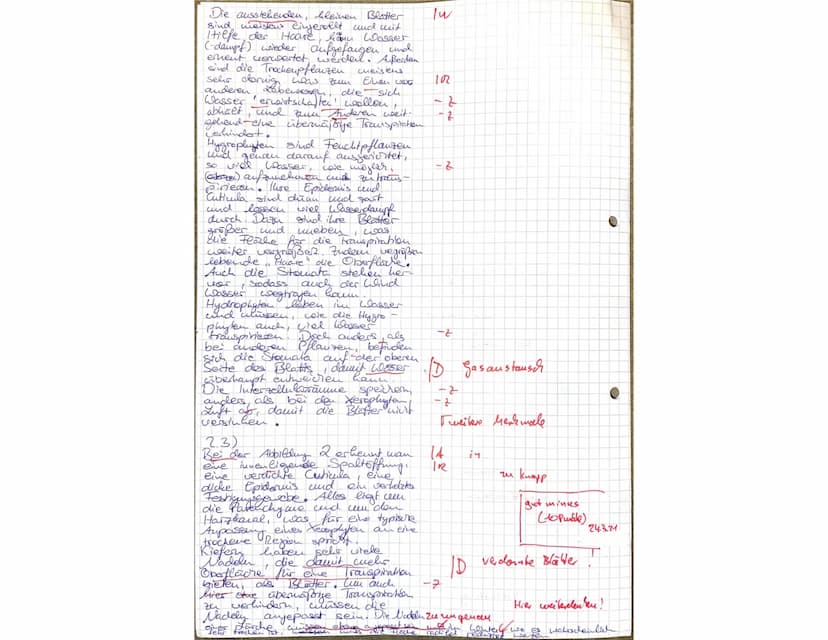 Die ausstehenden, kleinen Blätter |W
sind meistens eingerollt und mit
Hilfe der Haare, kann Wasser
(-dampf) wieder aufgefangen und
erneut verwertet werden. Außerdem
sind die Trockenpflanzen meistens
sehr dornig was zum Einen von |R
anderen Lebewesen, die sich
Wasser 'erwirtschaften' wollen, -Z
abhält, und zum Anderen weit- -Z
gehend eine übermäßige Transpiration
verhindert.
Hygrophyten sind Feuchtpflanzen
und genau darauf ausgerichtet,
so viel Wasser, wie möglich, -Z
aufzunehmen und zu trans-
pirieren. Ihre Epidermis und
Cuticula sind dünn und zart
und lassen viel Wasserdampf
durch. Dazu sind ihre Blätter
größer und uneben, was
die Fläche für die Transpiration
weiter vergrößert. Zudem vergrößern
lebende „Haare" die Oberfläche.
Auch die Stomata stehen her-
vor, sodass auch der Wind
Wasser wegtragen kann.
Hydrophyten leben im Wasser
und müssen, wie die Hygro-
phyten auch, viel Wasser
transpirieren. Doch anders, als -Z
bei anderen Pflanzen, befinden
sich die Stomata auf der oberen
Seite des Blatts, damit Wasser |D Gasaustausch
überhaupt entweichen kann.
Die Interzellularräume speichern, -Z
anders, als bei den Xerophyten, -Z
Luft ab, damit die Blätter nicht
versinken. Γ weitere Merkmale
2.3)
Bei der Abbildung 2 erkennt man |A in
eine innenliegende Spaltöffnung, |R
eine verdickte Cuticula, eine zu knapp
dicke Epidermis und ein verholztes
Festigungsgewebe. Alles liegt um gut minus
die Parenchyme und um den
Harzkanal, was für eine typische 24.3.21
Anpassung eines Xerophyten an eine
trockene Region spricht.
Kiefern haben sehr viele
Nadeln, die damit mehr |D verdornte Blätter!
Oberfläche für eine Transpiration
bieten, als Blätter. Um auch -Z
hier eine übermäßige Transpiration
zu verhindern, müssen die Hier weiterdenken!
Nadeln angepasst sein. Die Nadeln zu ungenau